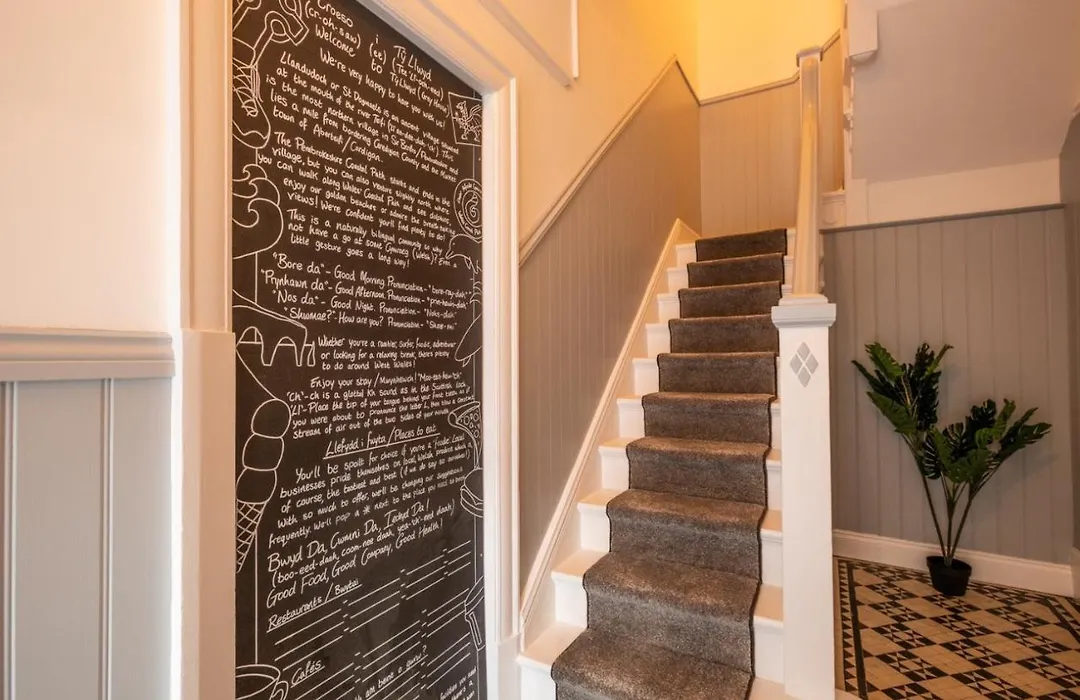 Croeso i Tŷ Llwyd
(cr-oh-saw) (ee)
Welcome to Tŷ Llwyd (Grey House)
We're very happy to have you with us!
Llandudoch or St Dogmaels is an ancient village situated
at the mouth of the river Teifi
is the most northern village in Sir Benfro/Pembrokeshire and
lies a mile from bordering Ceredigion County and the Market
town of Aberteifi/Cardigan.
The Pembrokeshire Coastal Path starts and ends in the
village, but you can also venture slightly north where
you can walk along Wales' Coastal Path and see dolphins,
enjoy our golden beaches or admire the breath taking
views! We're confident you'll find plenty to do!
This is a naturally bilingual community so why
not have a go at some Cymraeg (Welsh)? Even a
little gesture goes a long way!
"Bore da" - Good Morning. Pronunciation - "bore-ray-dah"
"Prynhawn da" - Good Afternoon. Pronunciation - "prin-hawn-dah"
"Nos da" - Good Night. Pronunciation - "Nohs-dah"
"Shwmae?" - How are you? Pronunciation - "Shoe-my"
Whether you're a rambler, surfer, foodie, adventurer
or looking for a relaxing break, there's plenty
to do around West Wales!
Enjoy your stay/Mwynhewch!
"Ch" - ch is a glottal Kh sound as in the Scottish loch
"Ll" - Place the tip of your tongue behind your front teeth as if
you were about to pronounce the letter L, then blow a constant
stream of air out of the two sides of your mouth
Llefydd i fwyta/Places to eat
You'll be spoilt for choice if you're a 'foodie'. Local
businesses pride themselves on local, Welsh produce which is,
of course, the tastiest and best (if we do say so ourselves!)
With so much to offer, we'll be changing our suggestions
frequently. We'll pop a * next to the place you must
Bwyd Da, Cwmni Da, Iechyd Da!
(boo-eed-daah, coom-nee daah, yea-ch'-eed daah)
Good Food, Good Company, Good Health!
Restaurants / Bwytai
Cafés